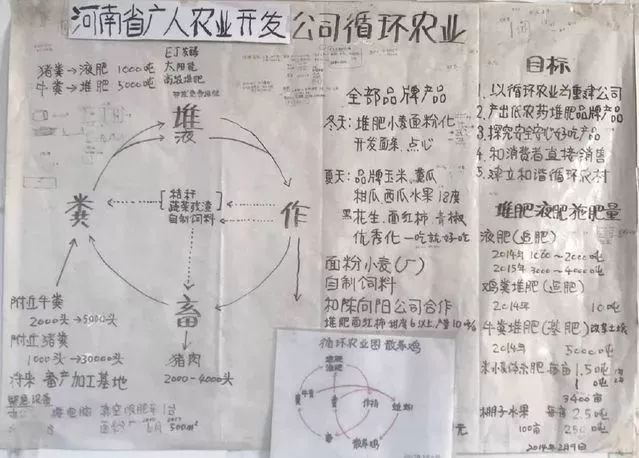 河南省广人农业开发公司循环农业
猪粪→液肥 1000吨
牛粪→堆肥 5000吨
EJ发酵
太阳能
堆
液
粪
作
畜
秸秆
蔬菜残渣
自制饲料
附近牛粪
2000头→5000头
附近猪粪
1000头→30000头
将来 畜产加工基地
猪肉
2000-4000头
全部品牌产品
冬天:堆肥小麦面粉化
开发面条、点心
夏天:品牌玉米、黄瓜
甜瓜 西瓜水果 18度
黑花生、面红柿 青椒
优秀化 一吃就好吃
面粉小麦(厂)
自制饲料
和陈向阳公司合作
堆肥面红柿 甜度6以上
循环农业图 散养鸡
堆肥
液肥
粪
作物
畜
蚯蚓
散养鸡
目标
1.以循环农业为重建公司
2.产出低农药堆肥品牌产品
3.探究安全安心好吃产品
4.和消费者直接销售
5.建立和谐循环农村
堆肥液肥施肥量
液肥(追肥)
2014年 1000~2000吨
2015年 3000~4000吨
鸡粪堆肥(追肥)
2014年 10吨
牛粪堆肥(基肥) 改良土壤
2014年 5000吨
1.5吨
3400亩
棚子水果 每亩 2.5吨
100亩 250吨
2014年2月9日